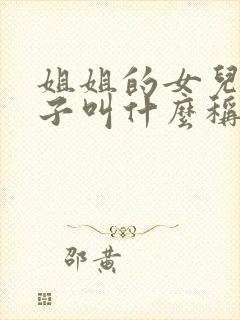 姐姐的女兒
子叫什麼稱
邵黃